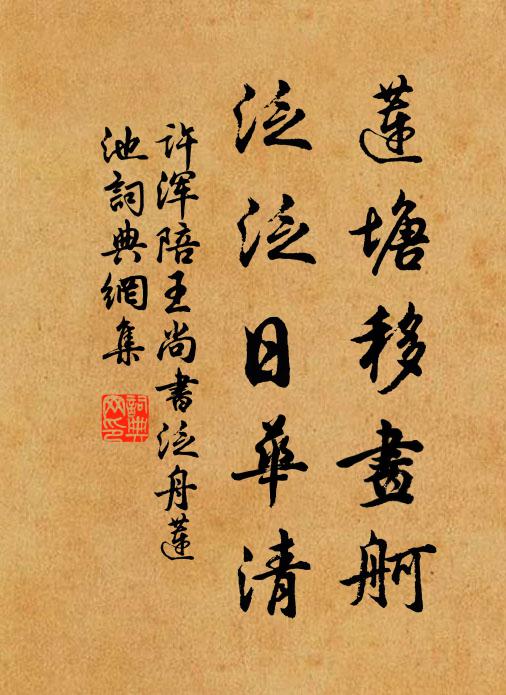 蓮塘移畫舸
泛泛日華清
许渾陪王尚書泛舟蓮
池詞典網集
詞典网印